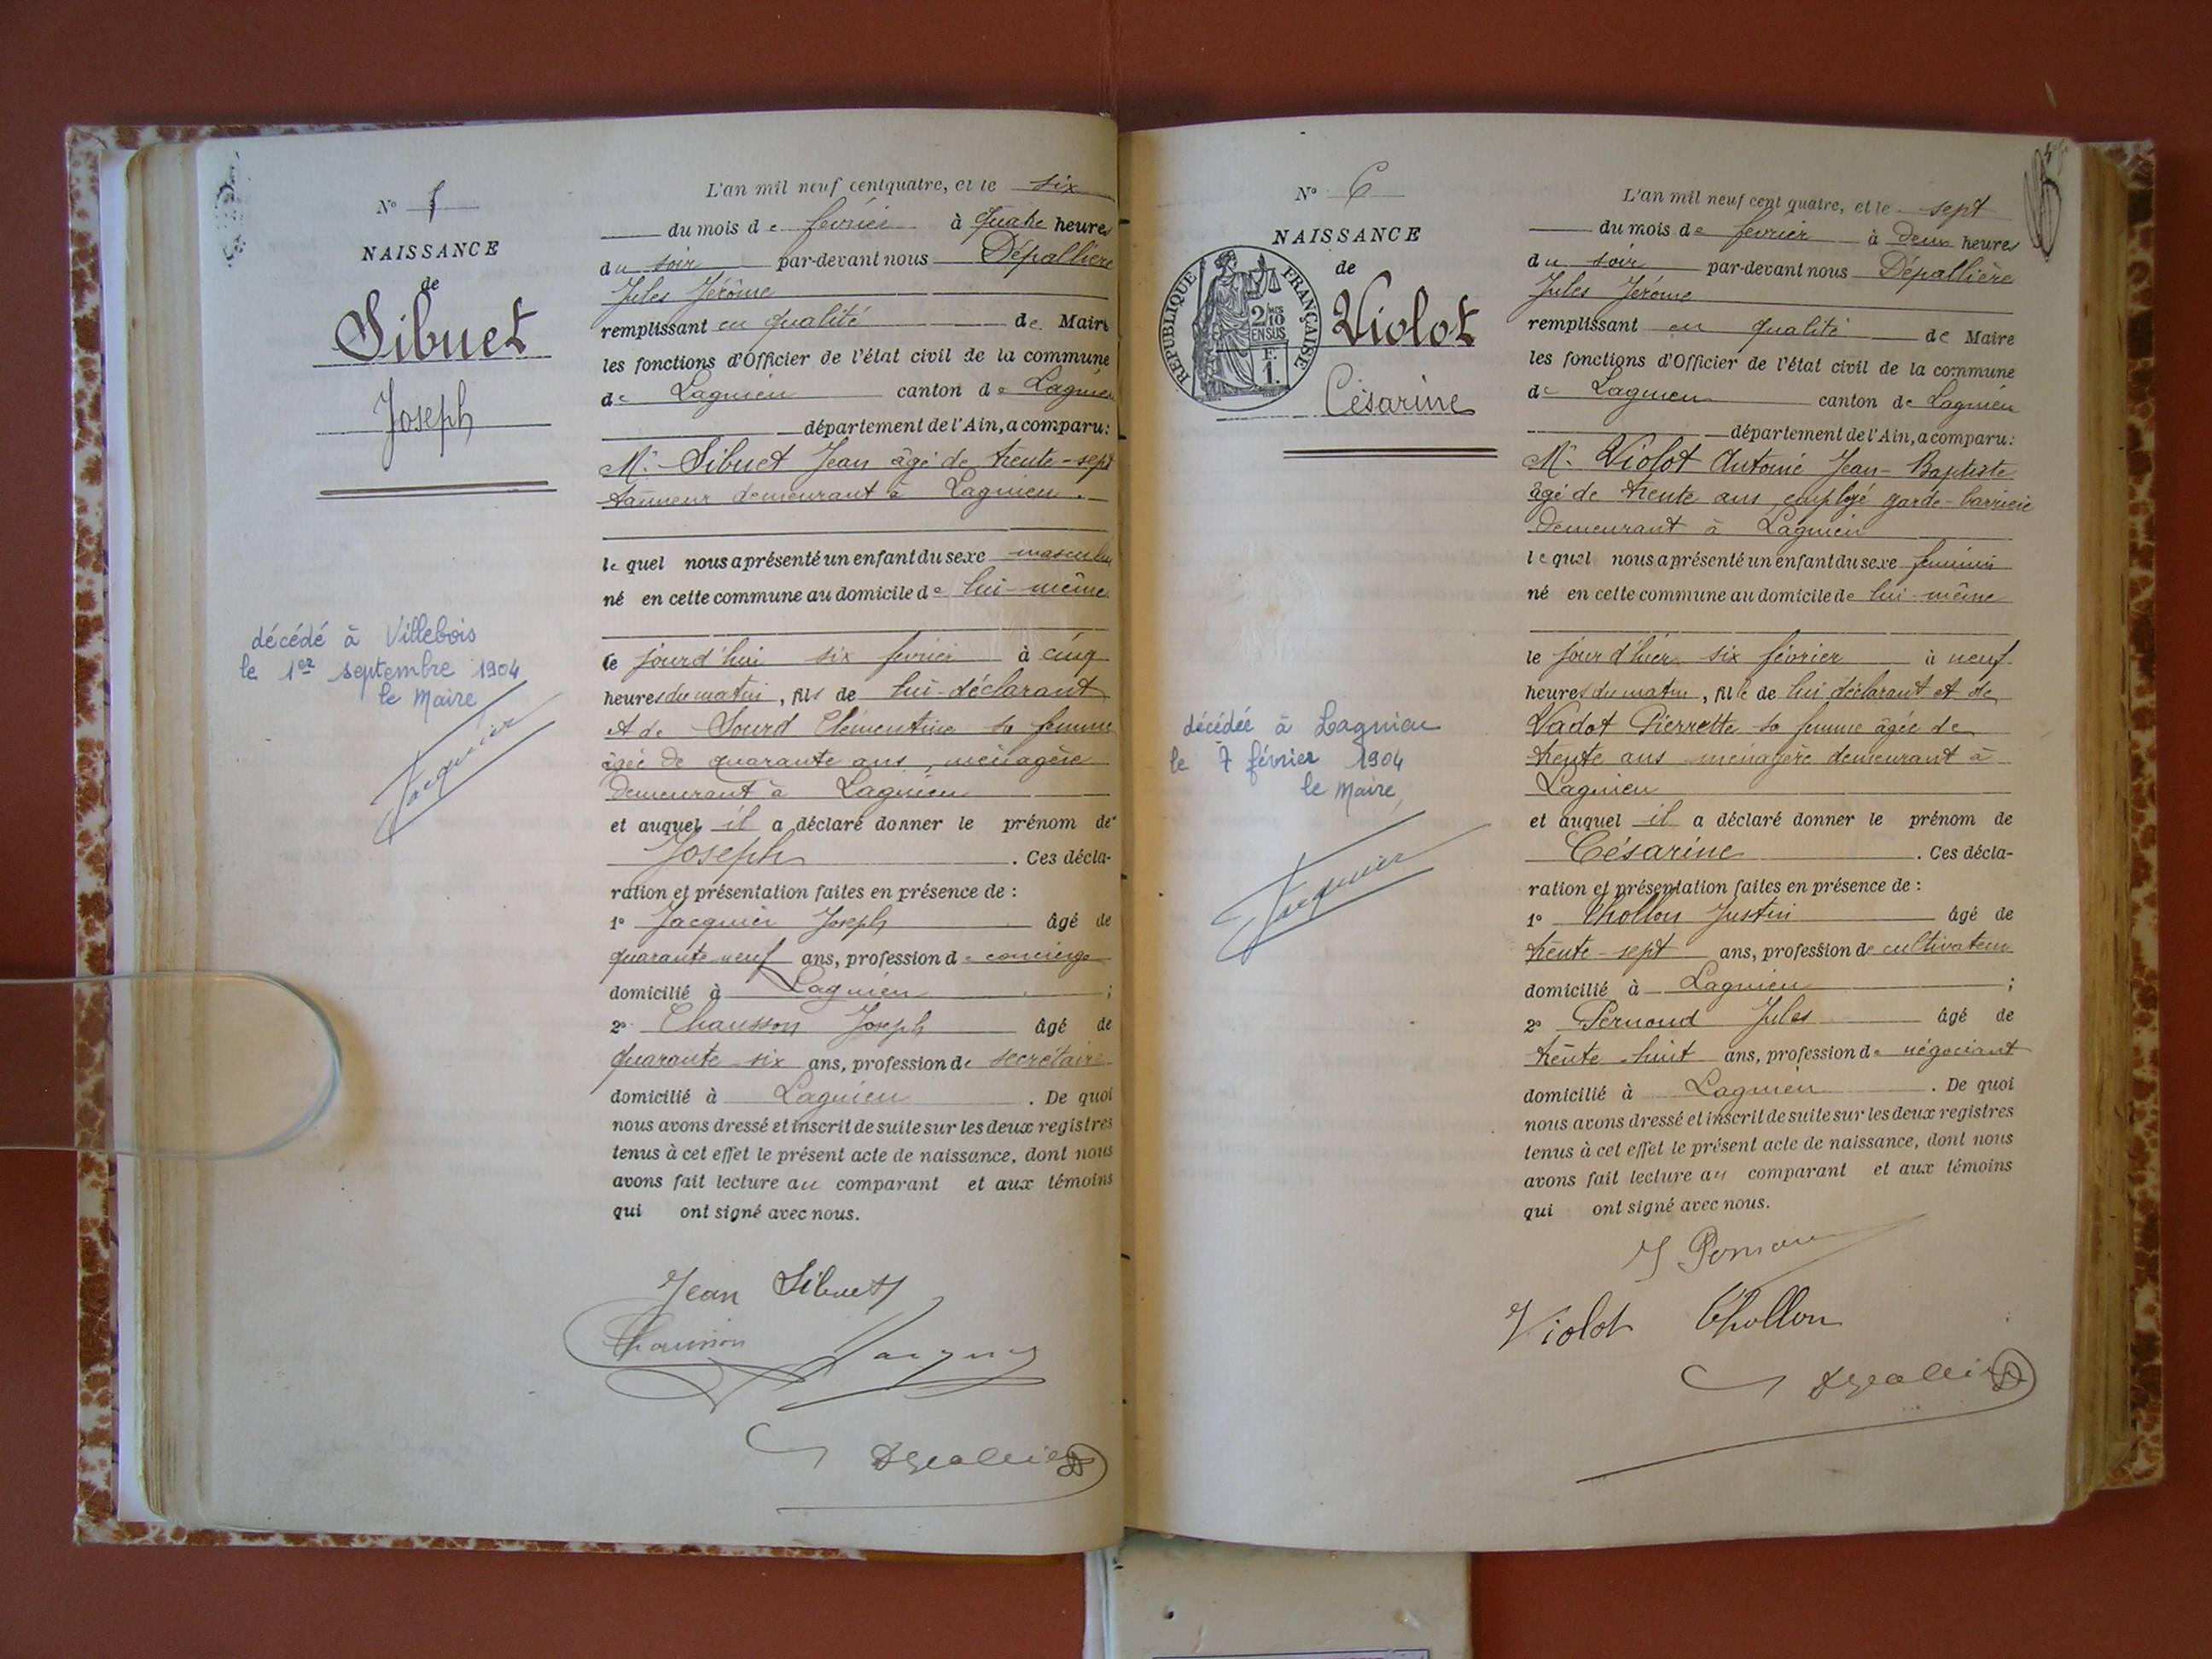 N° 5
NAISSANCE
de
Sibuet
Joseph
décédé à Villebois
le 1er septembre 1904
le Maire
Jacquier
L'an mil neuf cent quatre, et le six
du mois de février à quatre heures
du soir par-devant nous Dépallière
Jules Jérôme
remplissant en qualité de Maire
les fonctions d'Officier de l'état civil de la commune
de Lagnieu canton de Lagnieu
département de l'Ain, a comparu:
Mr. Sibuet Jean âgé de trente-sept
tanneur demeurant à Lagnieu.
le quel nous a présenté un enfant du sexe masculin
né en cette commune au domicile de lui-même
le jourd'hui six février à cinq
heures du matin, fils de lui-déclarant
et de Sourd Clémentine sa femme
âgée de quarante ans, ménagère
demeurant à Lagnieu
et auquel il a déclaré donner le prénom de
Joseph. Ces décla-
ration et présentation faites en présence de :
1° Jacquier Joseph âgé de
quarante-neuf ans, profession de concierge
domicilié à Lagnieu ;
2° Chausson Joseph âgé de
quarante six ans, profession de secrétaire
domicilié à Lagnieu. De quoi
nous avons dressé et inscrit de suite sur les deux registres
tenus à cet effet le présent acte de naissance, dont nous
avons fait lecture au comparant et aux témoins
qui ont signé avec nous.
Jean Sibuet
Chausson
N° 6
NAISSANCE
de
RÉPUBLIQUE FRANÇAISE
2/10
EN SUS
F.
1.
Violot
Césarine
décédée à Lagnieu
le 7 février 1904
le Maire,
Jacquier
L'an mil neuf cent quatre, et le sept
du mois de février à deux heures
du soir par-devant nous Dépallière
Jules Jérôme
remplissant en qualité de Maire
les fonctions d'Officier de l'état civil de la commune
de Lagnieu canton de Lagnieu
département de l'Ain, a comparu:
Mr. Violot Antoine Jean-Baptiste
âgé de trente ans employé garde-barrière
demeurant à Lagnieu
le quel nous a présenté un enfant du sexe féminin
né en cette commune au domicile de lui-même
le jour d'hier six février à neuf
heures du matin, fille de lui déclarant et de
Vadot Pierrette sa femme âgée de
trente ans ménagère demeurant à
Lagnieu
et auquel il a déclaré donner le prénom de
Césarine. Ces décla-
ration et présentation faites en présence de :
1° Chollon Justin âgé de
trente-sept ans, profession de cultivateur
domicilié à Lagnieu ;
2° Pernoud Jules âgé de
trente huit ans, profession de négociant
domicilié à Lagnieu. De quoi
nous avons dressé et inscrit de suite sur les deux registres
tenus à cet effet le présent acte de naissance, dont nous
avons fait lecture au comparant et aux témoins
qui ont signé avec nous.
Violot Chollon